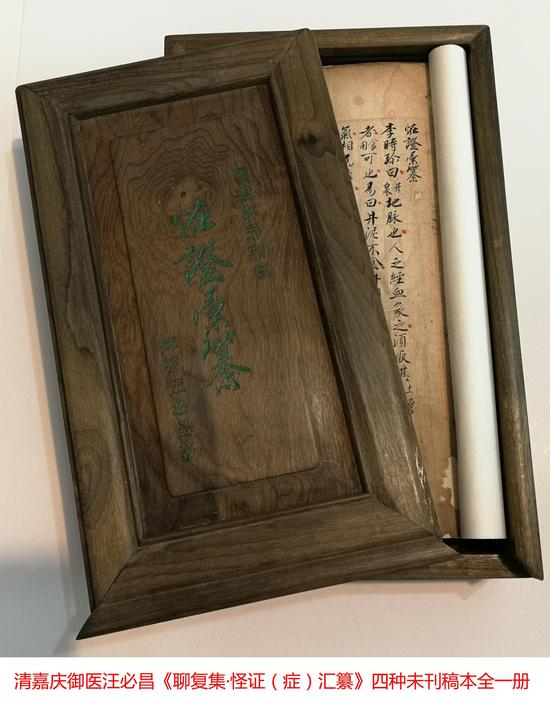 恠證彙纂
恠證彙纂
李時珍曰井泉地脉也人之經血象之須取其土厚
者用可也易曰井泥不食井
氣相
清嘉庆御医汪必昌《聊复集·怪证（症）汇纂》四种未刊稿本全一册